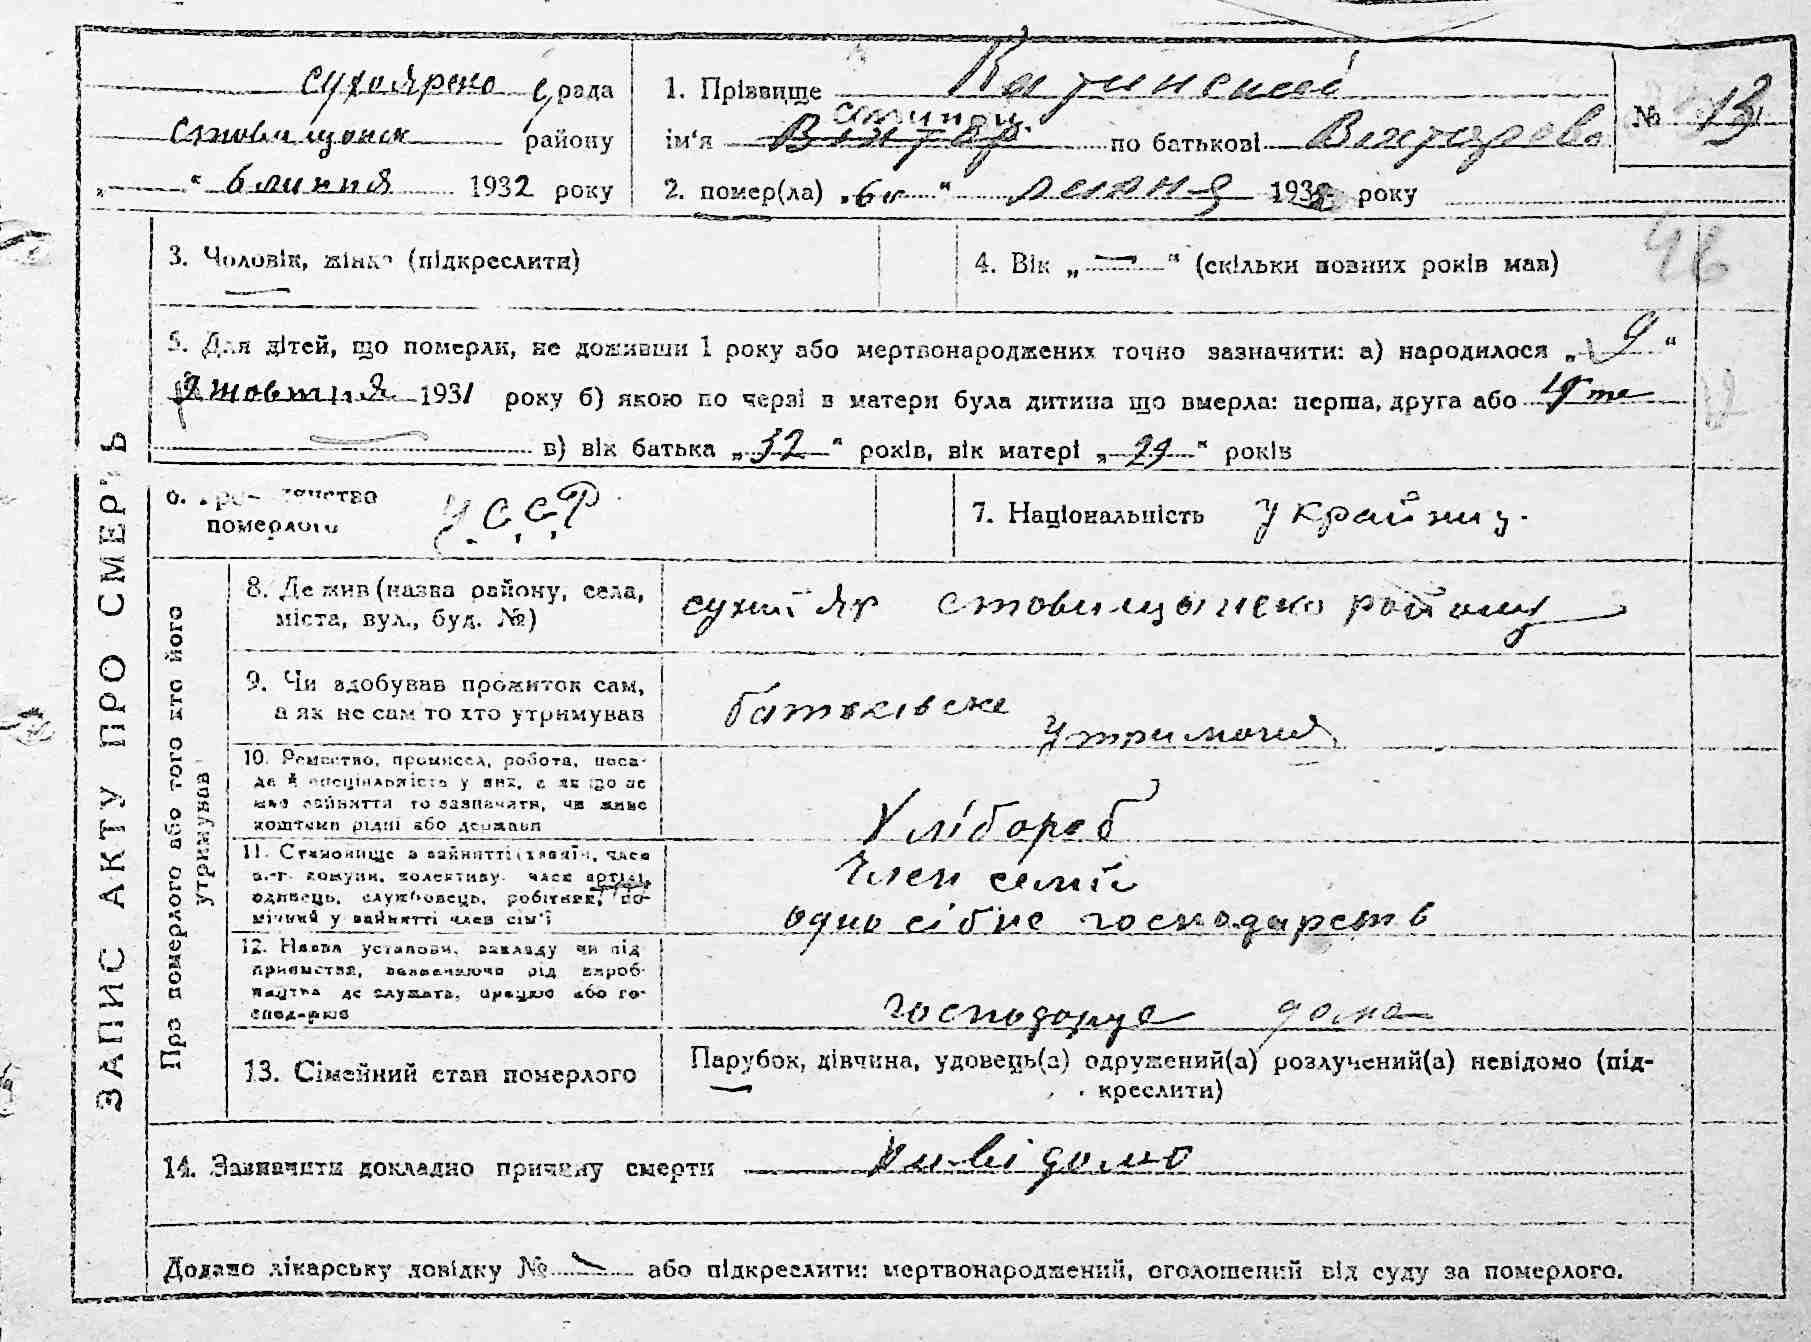 ЗАПИС АКТУ ПРО СМЕРТЬ
сухоярско с/рада
ставищанск району
„ “ 6 липня 1932 року
1. Прізвище
ім'я Віктор по батькові Вікторово
№ 13
2. помер(ла) „6“ липня 1932 року
3. Чоловік, жінка (підкреслити)
4. Вік „ — “ (скільки повних років мав)
46
5. Для дітей, що померли, не доживши 1 року або мертвонароджених точно зазначити: а) народилося „9“
жовтня 1931 року б) якою по черзі в матери була дитина що вмерла: перша, друга або 4 та
в) вік батька „32“ років, вік матері „29“ років
6. Громадянство
померлого У.С.С.Р
7. Національність Украйниц.
Про померлого або того хто його
утримував
8. Де жив (назва району, села,
міста, вул., буд. №)
сухий Яр ставищанско району
9. Чи здобував прожиток сам,
а як не сам то хто утримував
батьківске
утриманя
10. Ремество, промисел, робота, поса-
да й спеціяльність у них, а як що не
мав зайняття то зазначити, чи живе
коштами рідні або держави
Хлібороб
11. Становище в зайнятті (хазяїн, член
с.-г. комуни, колективу, член артілі,
одинець, службовець, робітник, по-
мічний у зайнятті член сім'ї
Член семії
одно сібне господарств
12. Назва установи, закладу чи під
приємства, зазначаючи рід вироб-
ництва де служить, працює або го-
сподарює
господарує дома
13. Сімейний стан померлого
Парубок, дівчина, удовець(а) одружений(а) розлучений(а) невідомо (під-
креслити)
14. Зазначити докладно причину смерти невідомо
Додано лікарську довідку № — або підкреслити: мертвонароджений, оголошений від суду за померлого.